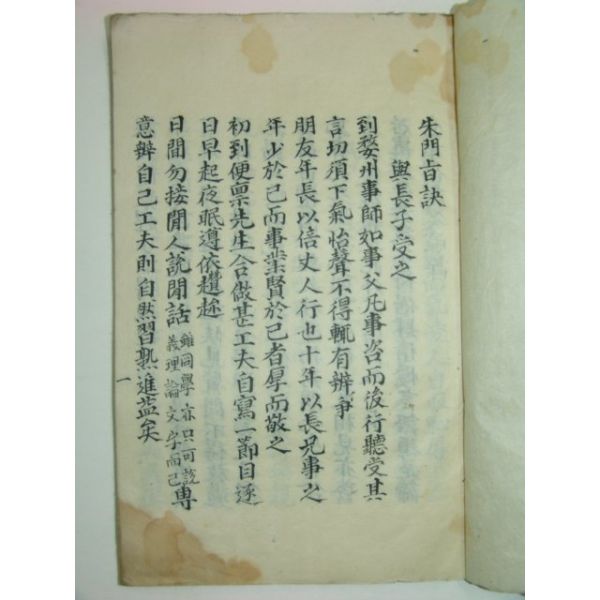 朱門旨訣
與長子受之
到婺州事師如事父凡事咨而後行聽受其
言切須下氣怡聲不得輒有辨爭
朋友年長以倍丈人行也十年以長兄事之
年少於己而事業賢於己者厚而敬之
初到便禀先生合做甚工夫自寫一節目逐
日早起夜眠遵依趲趁
日間勿接閒人說閒話雖同學亦只可說義理論文字而已專
意辦自己工夫則自然習熟進益矣
一